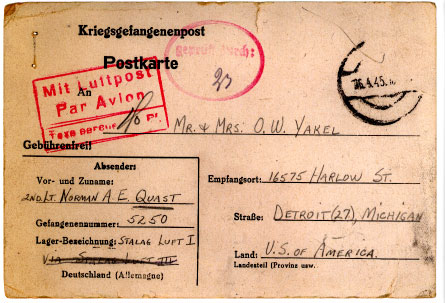 Kriegsgefangenenpost
Postkarte
geprüft durch:
Mit Luftpost
Par Avion
Taxe perçue Pf.
An
Mr. & Mrs. O. W. Yakel
Gebührenfrei
Absenders
Vor- und Zuname:
2nd. Lt. Norman A. E. Quast
Gefangenennummer: 5250
Lager-Bezeichnung: Stalag Luft I
Via Stalag Luft III
Deutschland (Allemagne)
Empfangsort: 16575 Harlow St.
Straße: Detroit (27), Michigan
Land: U.S. of America.
Landesteil (Provinz usw.